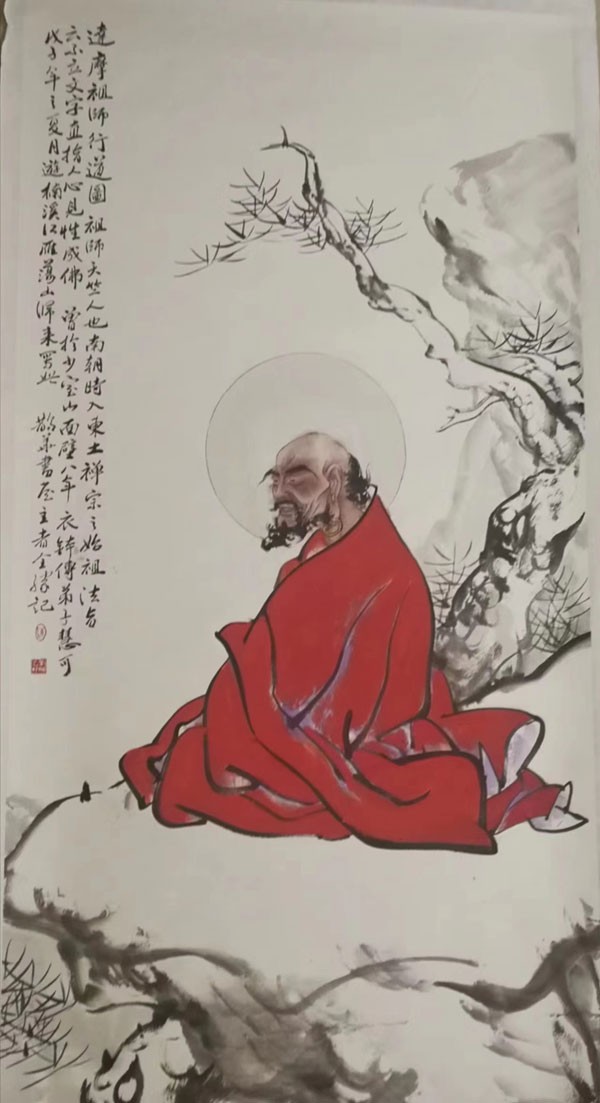 達摩祖師行道圖 祖師天竺人也南朝時入東土禪宗之始祖法旨
云不立文字直指人心見性成佛 曾於少室山面壁八年衣缽傳弟子慧可
戊子年之夏月遊楠溪江雁蕩山歸來寫此 鵲華書屋主者全勝記